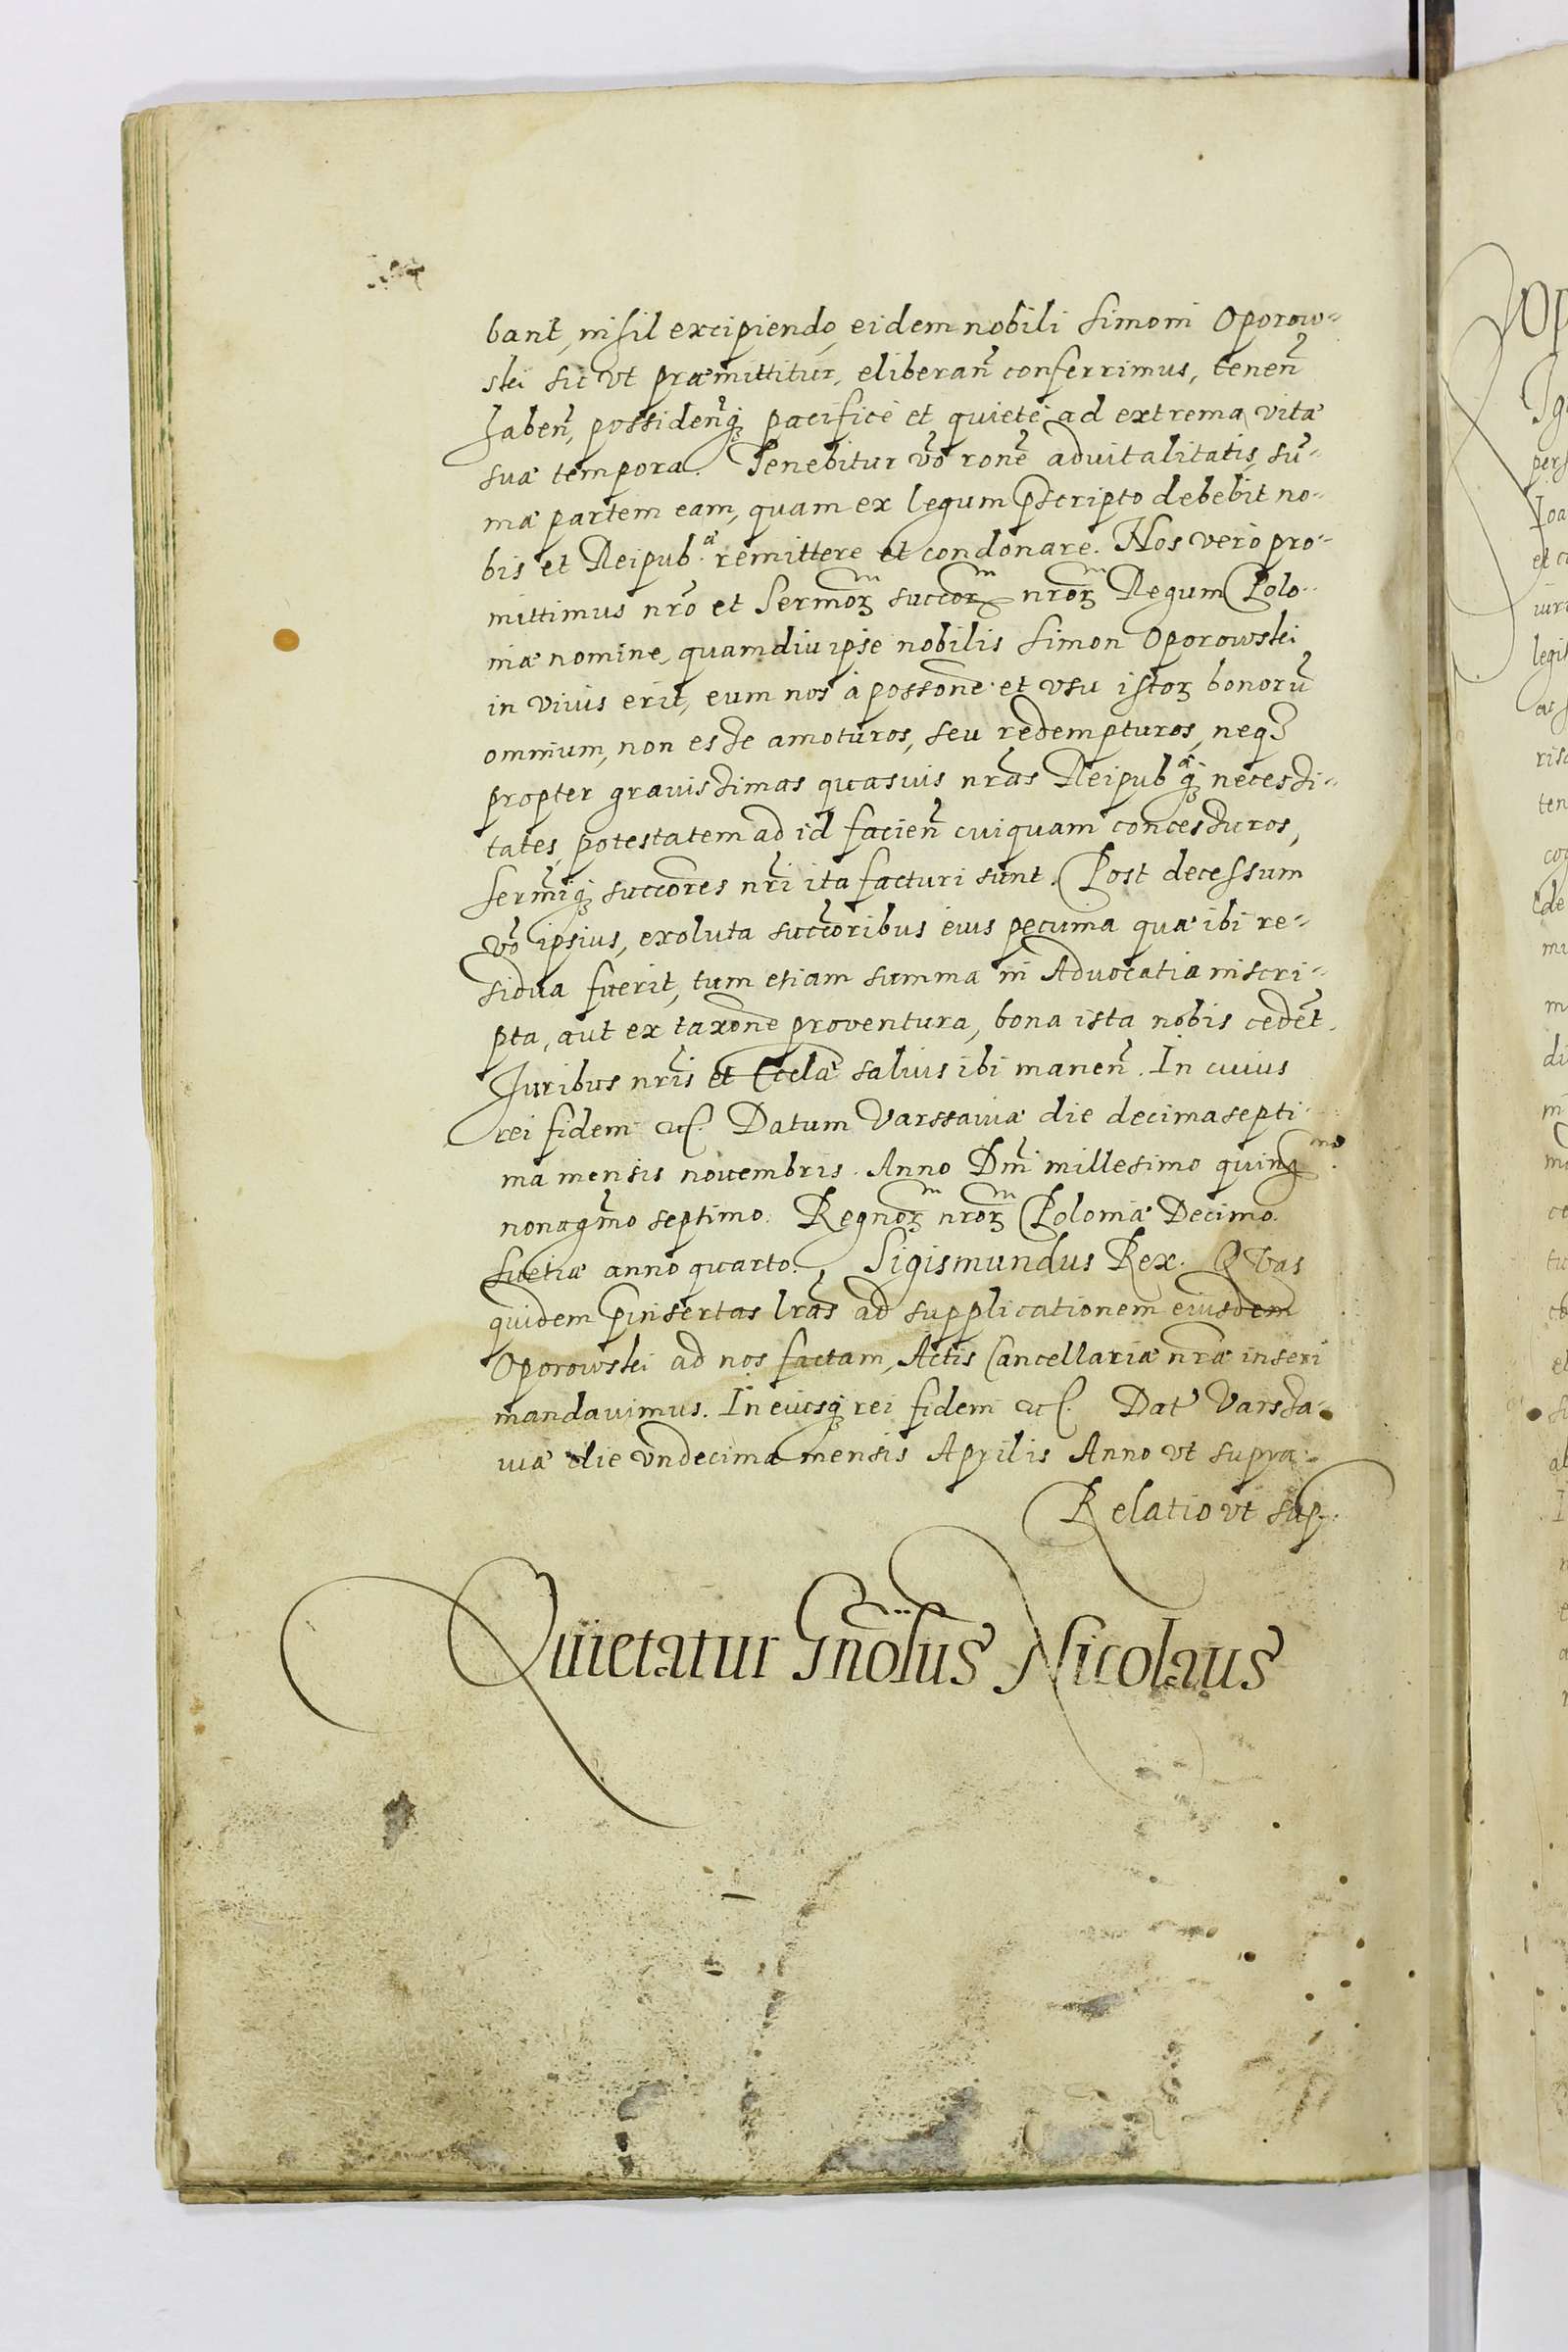 bant, nihil excipiendo, eidem nobili Simoni Oporow-
ski sic vt præmittitur, eliberan̄ conferrimus, tenen̄
haben̄, possiden̄q́ꝫ pacificè et quietè ad extrema vitæ
suæ tempora. Tenebitur v̄o ron̄e advitalitatis, sū-
mæ partem eam, quam ex legum p̄scripto debebit no-
bis et Reipub.ᵃᵉ remittere et condonare. Nos verò pro-
mittimus nr̄o et Sermoꝝᵐ succoꝝᵐ nroꝝᵐ Regum Polo-
niæ nomine, quamdiu ipse nobilis Simon Oporowski
in viuis erit, eum nos à posson̄e et vsu istoꝝ bonorū
omnium, non esse amoturos, seu redempturos, neqꝫ
propter gravissimas quasuis nr̄as Reipubᵃᵉq́ꝫ necessi-
tates, potestatem ad id facien̄ cuiquam concessuros,
Serm̄iq́ꝫ succōres nr̄i ita facturi sunt. Post decessum
v̄o ipsius, exoluta succōribus eius pecunia quæ ibi re-
sidua fuerit, tum etiam summa in Advocatia inscri-
pta, aut ex taxōne proventura, bona ista nobis cedēt.
Juribus nr̄is et Eccl̄æ saluis ibi manen̄. In cuius
rei fidem &c. Datum Varssaviæ die decima septi-
ma mensis novembris. Anno Dn̄i millesimo quingᵐᵒ
nonagm̄o septimo. Regnoꝝᵐ nroꝝᵐ Poloniæ Decimo.
Suetiæ anno quarto. Sigismundus Rex. QVas
quidem p̄insertas lr̄as ad supplicationem eiusdem
Oporowski ad nos factam, Actis Cancellariæ nr̄æ inseri
mandavimus. In eiusq́ꝫ rei fidem &c. Dat Varssa-
viæ die vndecima mensis Aprilis Anno vt supra.
Relatio vt sup.
Quietatur Gn̄osus Nicolaus